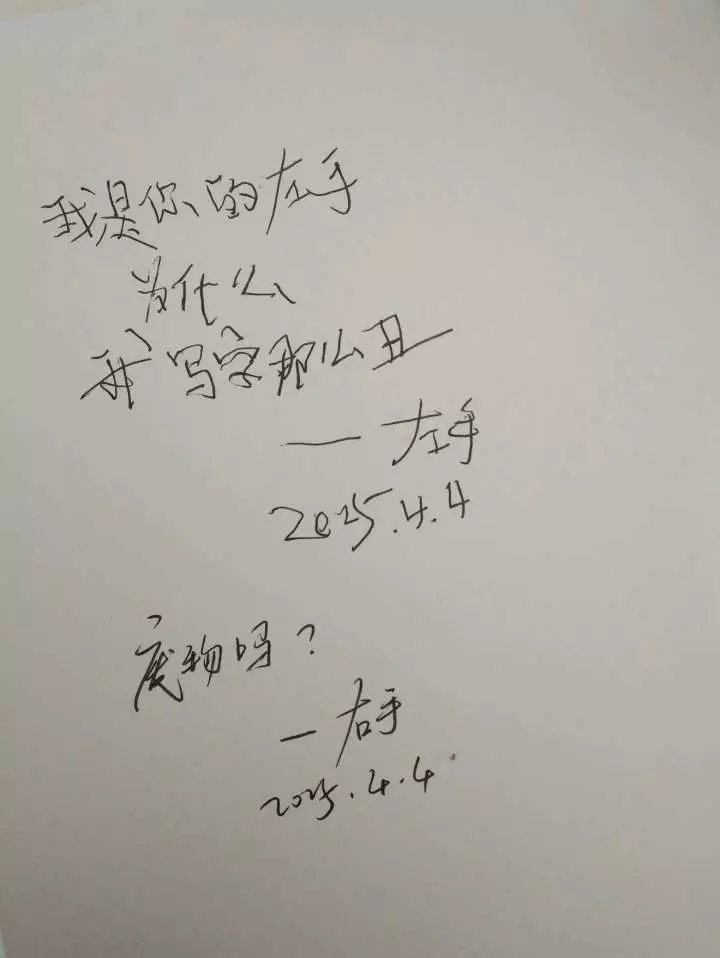 我是你的左手
为什么
我写字那么丑
——左手
2025.4.4
废物吗？
—右手
2025.4.4